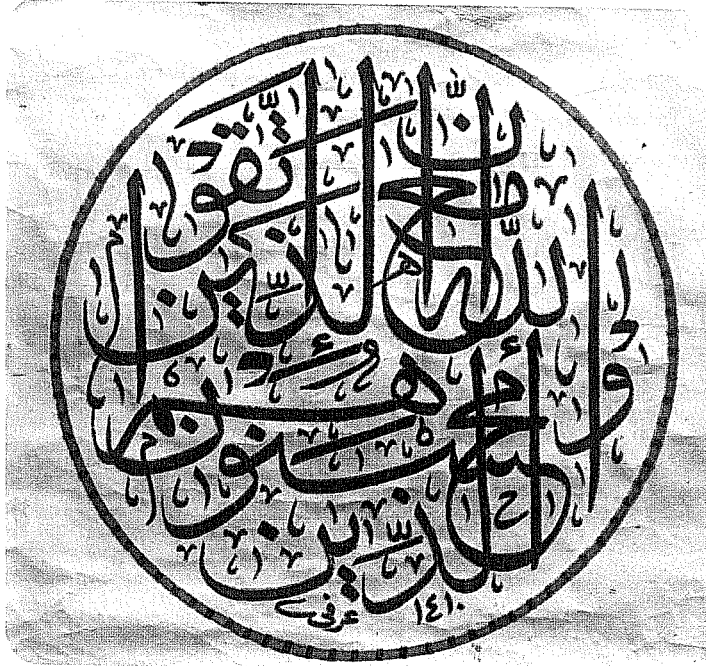 إن الله مع الذين اتقوا
والذين هم محسنون
١٤١٠ عرفي